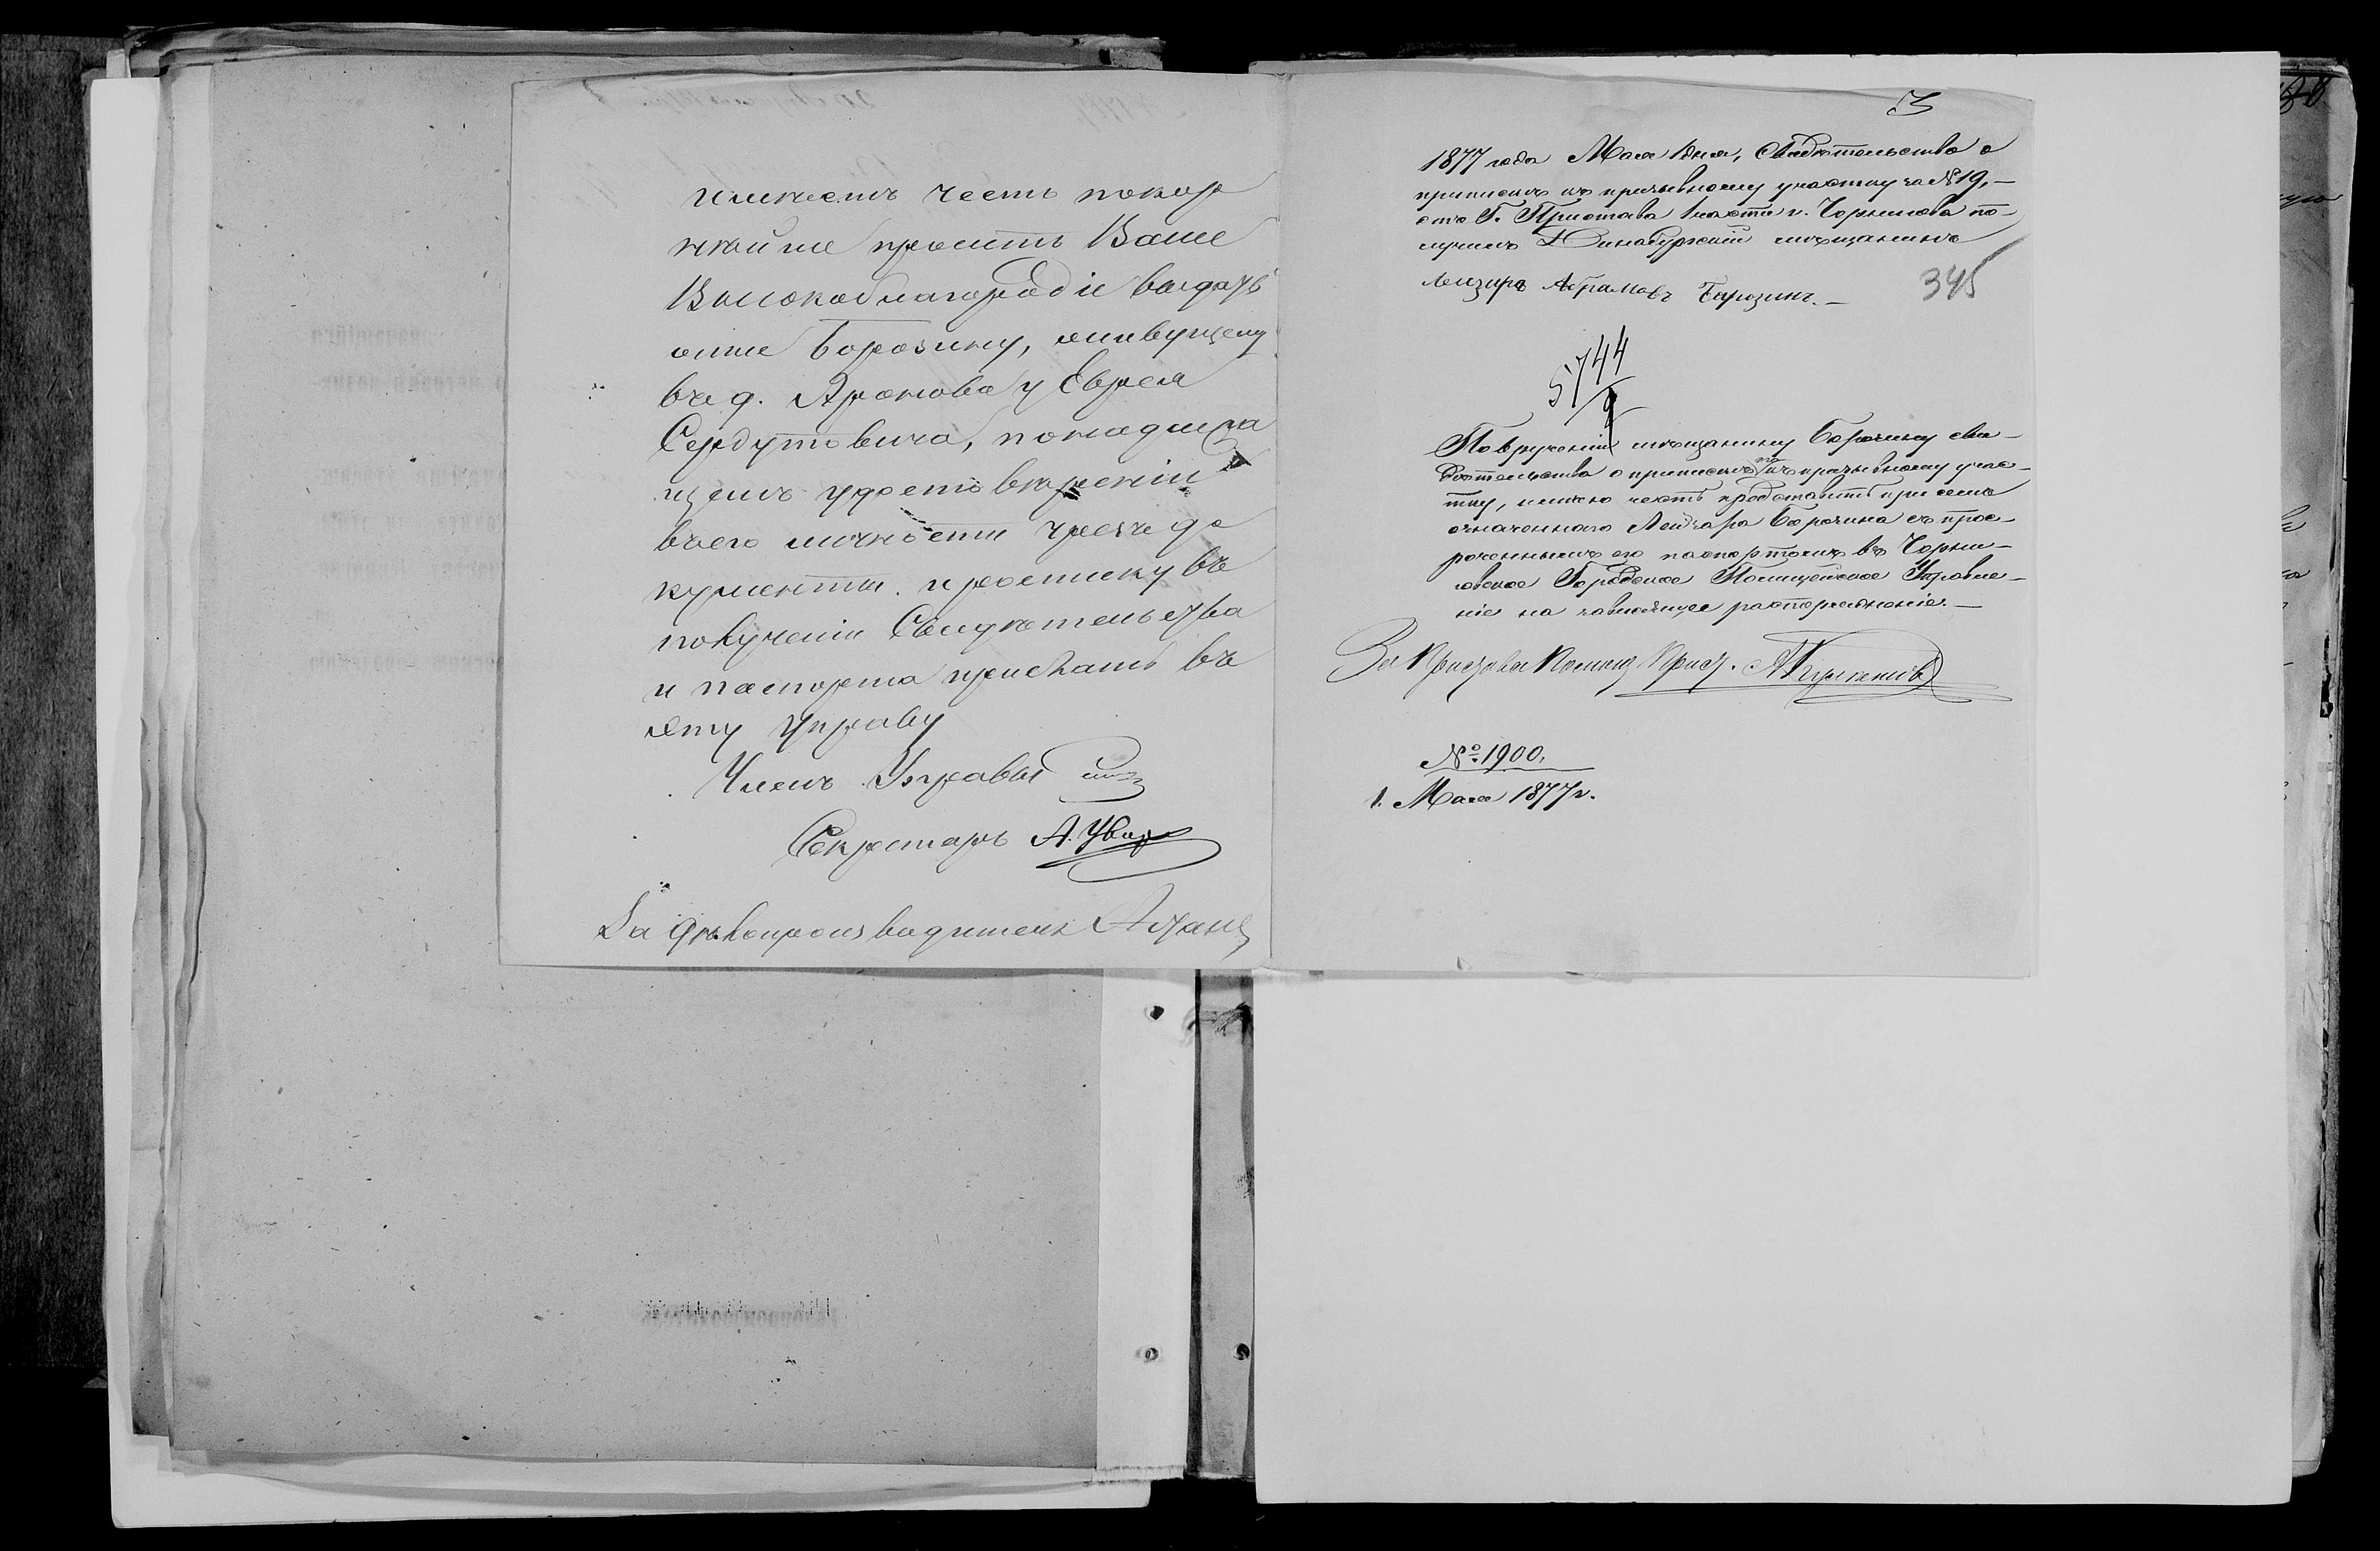 имѣетъ честь покор
нѣйше просить Ваше
Высокоблагородіе выдать
оние Борозину, живущему
въ д. Аронова у Еврея
Сердутовича, по надлежа
щемъ удостовѣреніи
въ его личности чрезъ до
кументы. и росписку въ
полученіи Свидѣтельства
и паспорта прислать въ
эту Управу
Членъ Управы
Секретарь А. Увар
За Дѣлопроизводителя
3
1877 года Мая 1 дня, Свидѣтельство о
припискѣ къ призывному участку за № 19,—
отъ Г. Пристава 1 части г. Чернигова по-
лучилъ Динабургскій мѣщанинъ
Лейзеръ Абрамовъ Борозинъ.—
345
5744
По врученіи мѣщанину Борозину сви-
дѣтельства о припискѣ къ призывному учас-
тку, имѣю честь представить при семъ
означеннаго Лейзера Борозина съ прос-
роченнымъ его паспортомъ въ Черни-
говское Городское Полицейское Управле-
ніе на зависящее распоряженіе.—
За Пристава Помощ. Прист.
№ 1900.
1. Мая 1877 г.